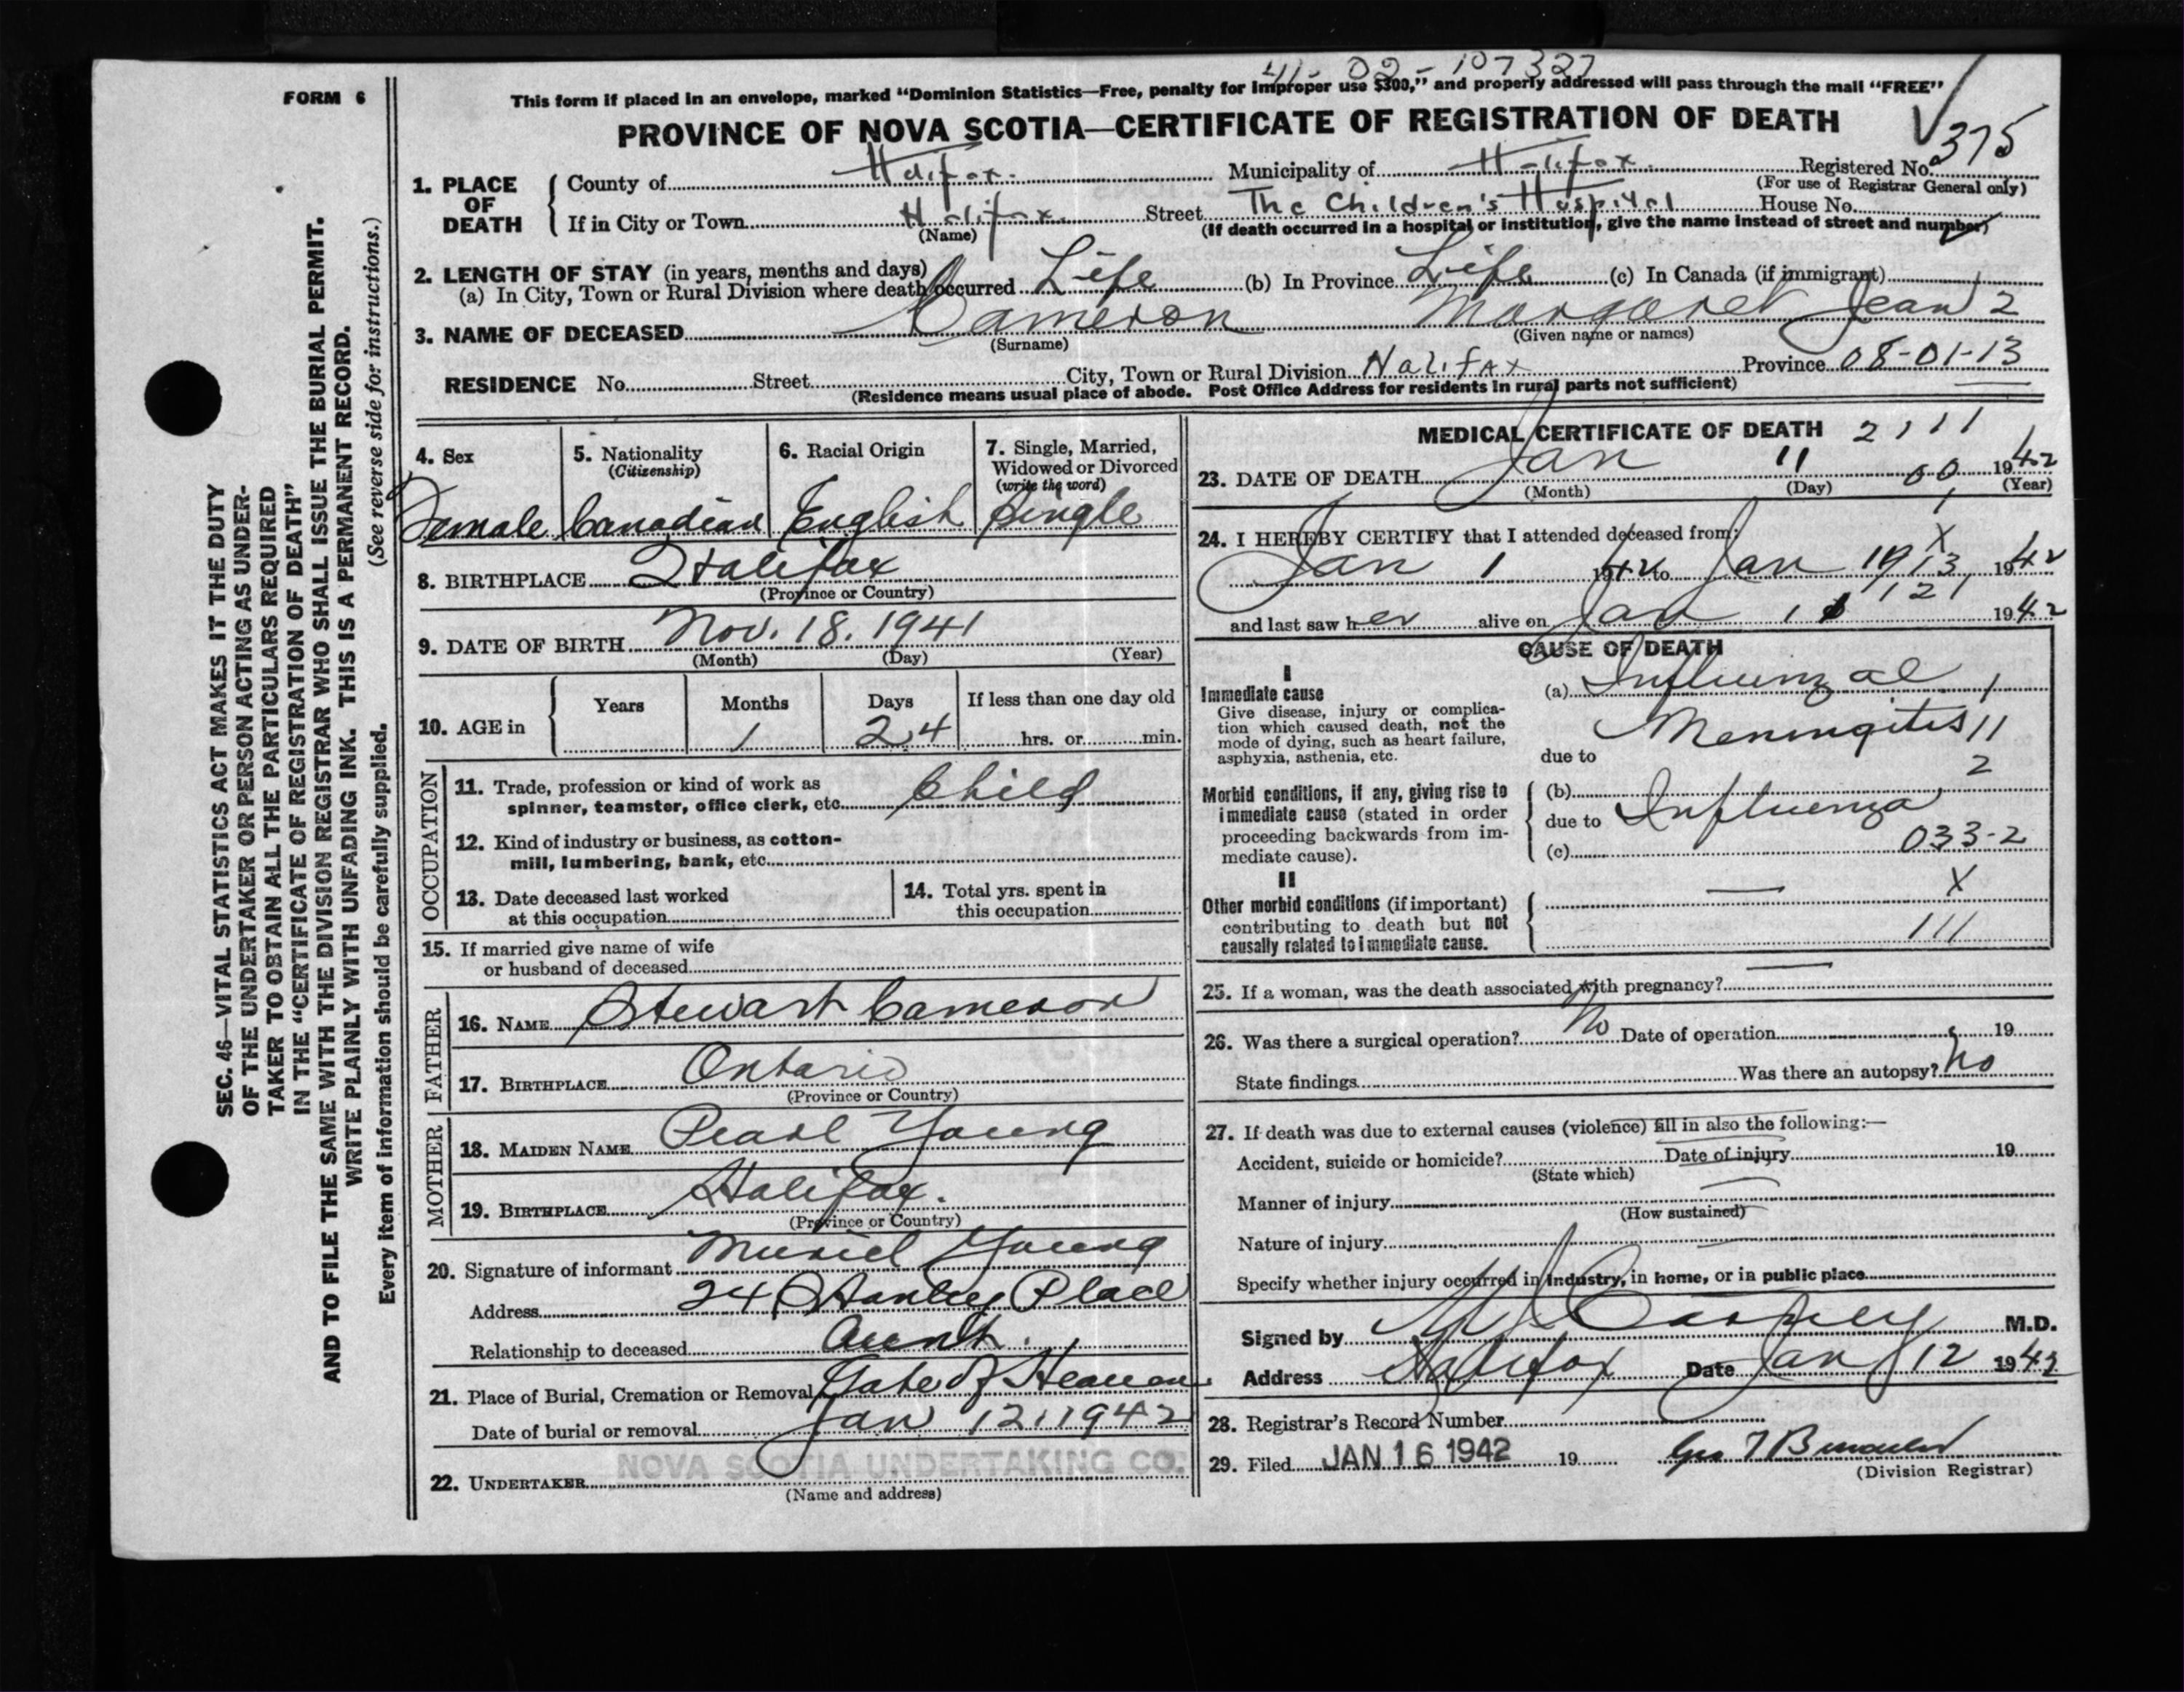 41-02-107327
FORM 6
This form if placed in an envelope, marked "Dominion Statistics—Free, penalty for improper use $300," and properly addressed will pass through the mail "FREE"
PROVINCE OF NOVA SCOTIA—CERTIFICATE OF REGISTRATION OF DEATH
375
1. PLACE OF DEATH
County of Halifax. Municipality of Halifax. Registered No.
(For use of Registrar General only)
If in City or Town Halifax. Street The Children's Hospital House No.
(Name) (If death occurred in a hospital or institution, give the name instead of street and number)
2. LENGTH OF STAY (in years, months and days)
(a) In City, Town or Rural Division where death occurred Life (b) In Province Life (c) In Canada (if immigrant)
3. NAME OF DECEASED Cameron Margaret Jean 2
(Surname) (Given name or names)
RESIDENCE No. Street City, Town or Rural Division Halifax Province 08-01-13
(Residence means usual place of abode. Post Office Address for residents in rural parts not sufficient)
4. Sex
Female
5. Nationality
(Citizenship)
Canadian
6. Racial Origin
English
7. Single, Married,
Widowed or Divorced
(write the word)
Single
8. BIRTHPLACE Halifax
(Province or Country)
9. DATE OF BIRTH Nov. 18. 1941
(Month) (Day) (Year)
10. AGE in
Years Months Days If less than one day old
1 24 hrs. or min.
OCCUPATION
11. Trade, profession or kind of work as
spinner, teamster, office clerk, etc. Child
12. Kind of industry or business, as cotton-
mill, lumbering, bank, etc.
13. Date deceased last worked
at this occupation
14. Total yrs. spent in
this occupation
15. If married give name of wife
or husband of deceased
FATHER
16. NAME Stewart Cameron
17. BIRTHPLACE Ontario
(Province or Country)
MOTHER
18. MAIDEN NAME Pearl Young
19. BIRTHPLACE Halifax.
(Province or Country)
20. Signature of informant Muriel Young
Address 24 Stanley Place
Relationship to deceased Aunt.
21. Place of Burial, Cremation or Removal Gate of Heaven
Date of burial or removal Jan 12, 1942
NOVA SCOTIA UNDERTAKING CO.
22. UNDERTAKER
(Name and address)
MEDICAL CERTIFICATE OF DEATH 2111
23. DATE OF DEATH Jan 11 00 1942
(Month) (Day) (Year)
24. I HEREBY CERTIFY that I attended deceased from:
Jan 1 1942 to Jan 1942
and last saw her alive on Jan 11 1942
CAUSE OF DEATH
I
Immediate cause
Give disease, injury or complica-
tion which caused death, not the
mode of dying, such as heart failure,
asphyxia, asthenia, etc.
(a) Influenzal 1
Meningitis 11
due to
2
Morbid conditions, if any, giving rise to
immediate cause (stated in order
proceeding backwards from im-
mediate cause).
(b)
due to Influenza
(c) 033-2
II
Other morbid conditions (if important)
contributing to death but not
causally related to immediate cause.
X
111
25. If a woman, was the death associated with pregnancy?
26. Was there a surgical operation? No Date of operation 19
State findings Was there an autopsy? No
27. If death was due to external causes (violence) fill in also the following:—
Accident, suicide or homicide? Date of injury 19
(State which)
Manner of injury
(How sustained)
Nature of injury
Specify whether injury occurred in Industry, in home, or in public place
Signed by M.D.
Address Halifax Date Jan 12 1942
28. Registrar's Record Number
29. Filed JAN 16 1942 19
(Division Registrar)
SEC. 46—VITAL STATISTICS ACT MAKES IT THE DUTY
OF THE UNDERTAKER OR PERSON ACTING AS UNDER-
TAKER TO OBTAIN ALL THE PARTICULARS REQUIRED
IN THE "CERTIFICATE OF REGISTRATION OF DEATH"
AND TO FILE THE SAME WITH THE DIVISION REGISTRAR WHO SHALL ISSUE THE BURIAL PERMIT.
WRITE PLAINLY WITH UNFADING INK. THIS IS A PERMANENT RECORD.
Every item of information should be carefully supplied. (See reverse side for instructions.)